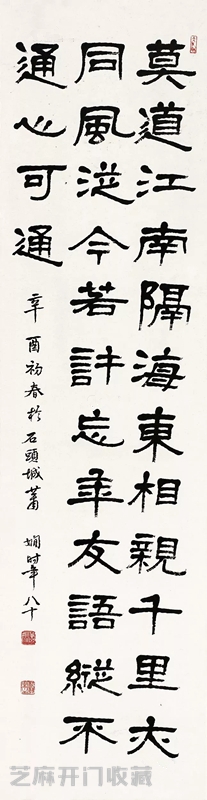 莫道江南隔海東相親千里亦
同風從今若許忘年友語縱不
通心可通
辛酉初春於石頭城蕭
嫻時年八十
芝麻开门收藏